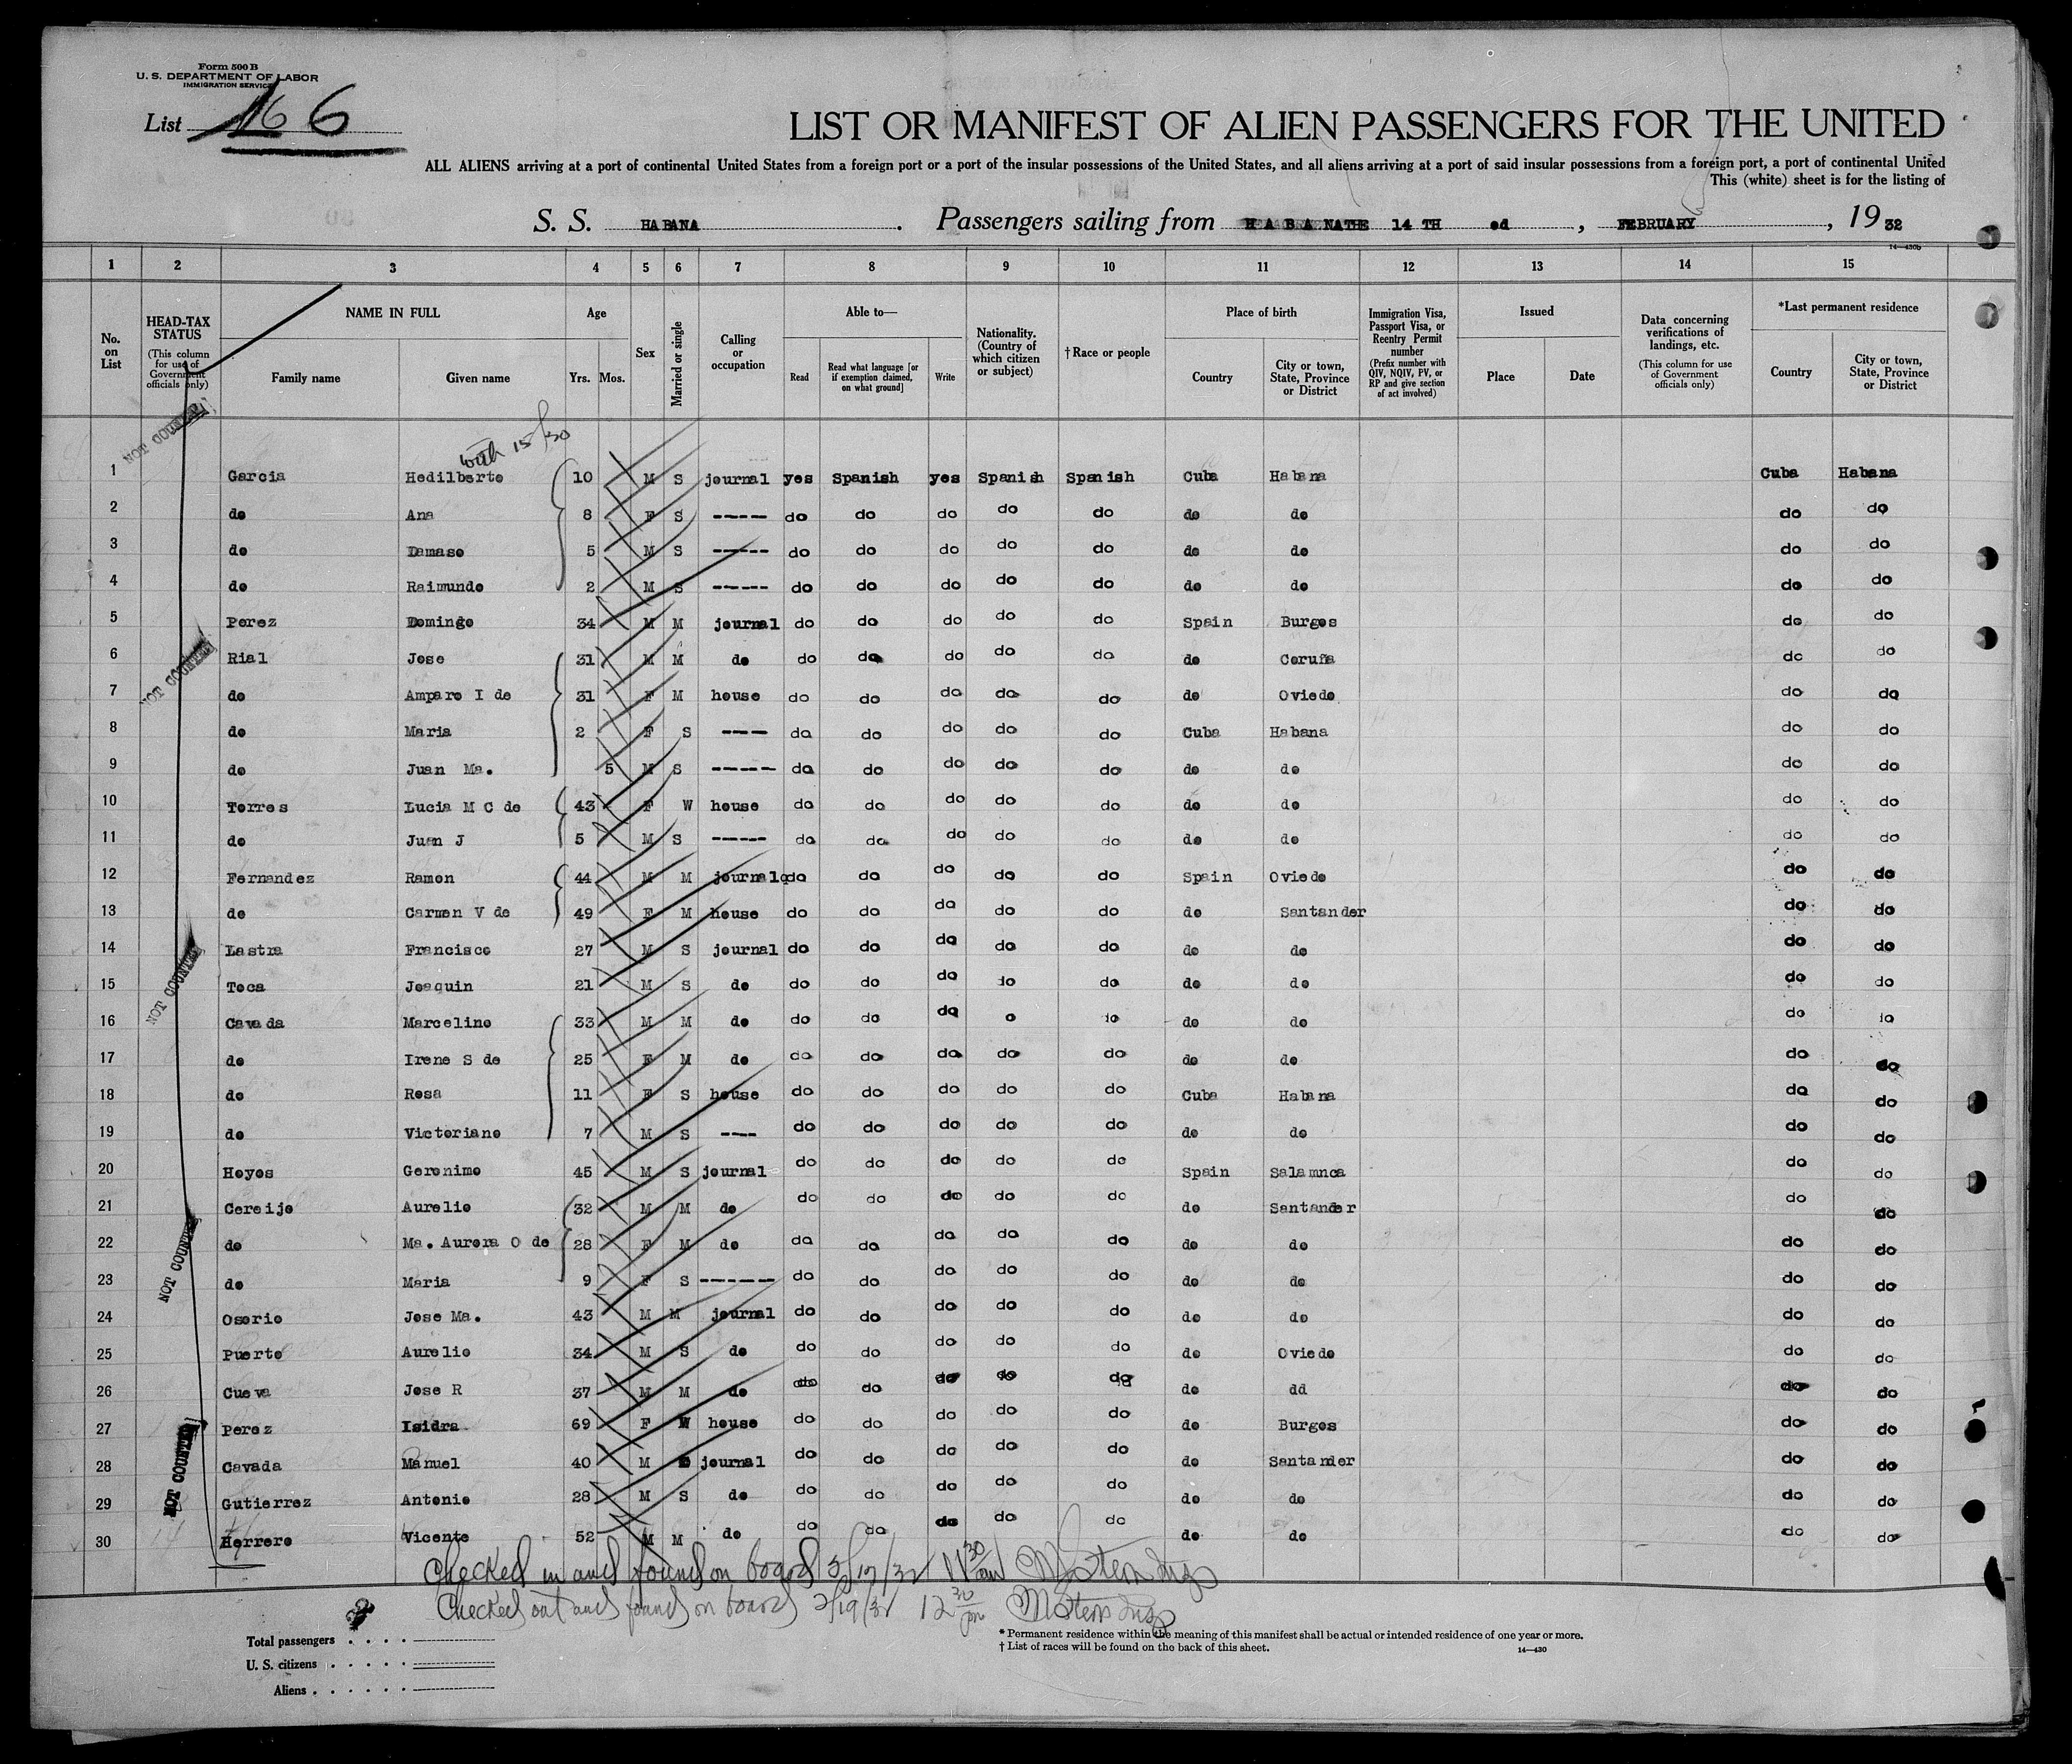 Form 500 B
U. S. DEPARTMENT OF LABOR
IMMIGRATION SERVICE
List 166
LIST OR MANIFEST OF ALIEN PASSENGERS FOR THE UNITED
ALL ALIENS arriving at a port of continental United States from a foreign port or a port of the insular possessions of the United States, and all aliens arriving at a port of said insular possessions from a foreign port, a port of continental United
This (white) sheet is for the listing of
S. S. HABANA . Passengers sailing from HABANA THE 14 TH ed , FEBRUARY , 19 32
14—430b
1 2 3 4 5 6 7 8 9 10 11 12 13 14 15
No. on List HEAD-TAX STATUS (This column for use of Government officials only) NAME IN FULL Family name Given name Age Yrs. Mos. Sex Married or single Calling or occupation Able to— Read Read what language [or if exemption claimed, on what ground] Write Nationality. (Country of which citizen or subject) †Race or people Place of birth Country City or town, State, Province or District Immigration Visa, Passport Visa, or Reentry Permit number (Prefix number with QIV, NQIV, PV, or RP and give section of act involved) Issued Place Date Data concerning verifications of landings, etc. (This column for use of Government officials only) *Last permanent residence Country City or town, State, Province or District
NOT COUNTED
with 15/30
1 Garcia Hedilberto 10 M S journal yes Spanish yes Spanish Spanish Cuba Habana Cuba Habana
2 do Ana 8 F S ----- do do do do do do do do do
3 do Damaso 5 M S ------ do do do do do do do do do
4 do Raimundo 2 M S ----- do do do do do do do do do
5 Perez Domingo 34 M M journal do do do do do Spain Burgos do do
6 Rial Jose 31 M M do do do do do do do Coruña do do
NOT COUNTED
7 do Amparo I de 31 F M house do do do do do do Oviedo do do
8 do Maria 2 F S ---- do do do do do Cuba Habana do do
9 do Juan Ma. 5 M S ----- do do do do do do do do do
10 Torres Lucia M C de 43 F W house do do do do do do do do do
11 do Juan J 5 M S ------ do do do do do do do do do
12 Fernandez Ramon 44 M M journal do do do do do Spain Oviedo do do
13 do Carmen V de 49 F M house do do do do do do Santander do do
14 Lastra Francisco 27 M S journal do do do do do do do do do
NOT COUNTED
15 Toca Joaquin 21 M S do do do do do do do do do do
16 Cavada Marcelino 33 M M do do do do o do do do do do
17 do Irene S de 25 F M do do do do do do do do do do
18 do Rosa 11 F S house do do do do do Cuba Habana do do
19 do Victoriano 7 M S ---- do do do do do do do do do
20 Hoyos Geronimo 45 M S journal do do do do do Spain Salamnca do do
21 Cereijo Aurelio 32 M M do do do do do do do Santander do do
22 do Ma. Aurora O de 28 F M do do do do do do do do do do
NOT COUNTED
23 do Maria 9 F S ------- do do do do do do do do do
24 Osorio Jose Ma. 43 M M journal do do do do do do do do do
25 Puerto Aurelio 34 M S do do do do do do do Oviedo do do
26 Cueva Jose R 37 M M do do do do do do do dd do do
27 Perez Isidra 69 F W house do do do do do do Burgos do do
28 Cavada Manuel 40 M journal do do do do do do Santander do do
NOT COUNTED
29 Gutierrez Antonio 28 M S do do do do do do do do do do
30 Herrero Vicente 52 M M do do do do do do do do do do
Checked in and found on board 2/19/32 11 30 am
Checked out and found on board 2/19/32 12 30 pm
Total passengers
U. S. citizens
Aliens
* Permanent residence within the meaning of this manifest shall be actual or intended residence of one year or more.
† List of races will be found on the back of this sheet.
14—430